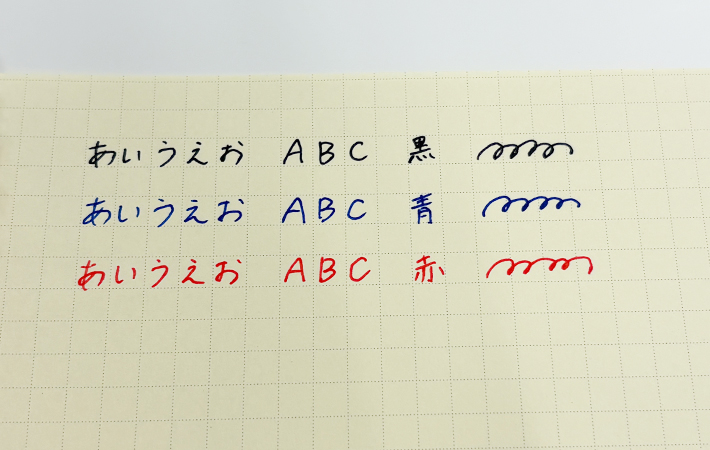 あいうえお ABC 黒
あいうえお ABC 青
あいうえお ABC 赤